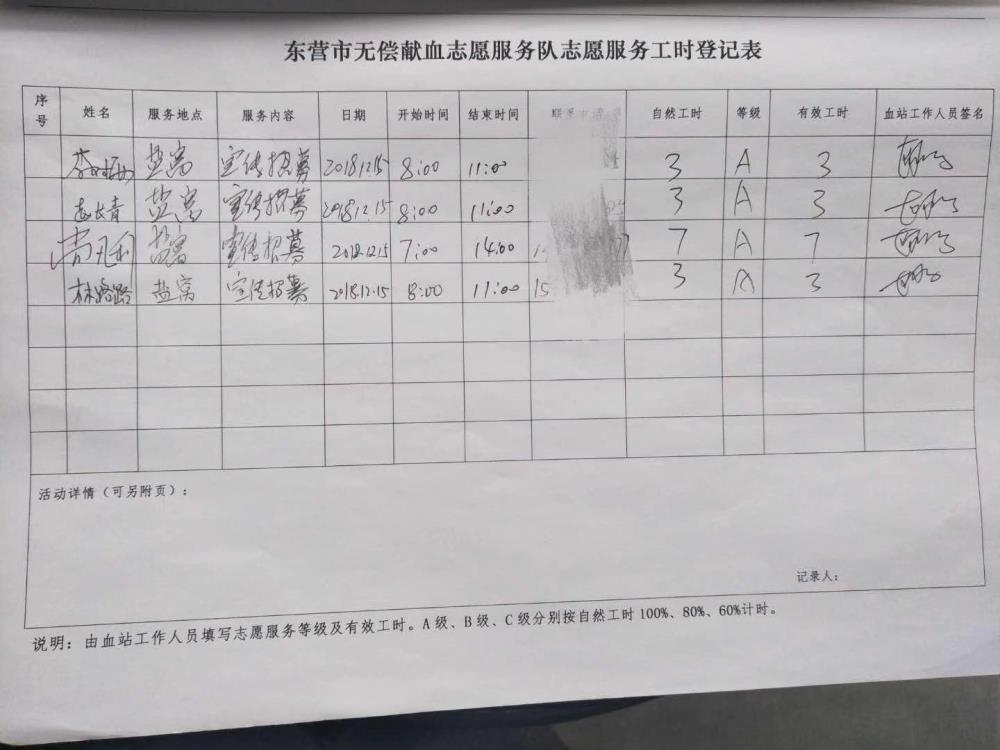 东营市无偿献血志愿服务队志愿服务工时登记表
序号 姓名 服务地点 服务内容 日期 开始时间 结束时间 联系电话 自然工时 等级 有效工时 血站工作人员签名
盐窝 宣传招募 2018.12.15 8:00 11:00 3 A 3
赵长青 盐窝 宣传招募 2018.12.15 8:00 11:00 3 A 3
盐窝 宣传招募 2018.12.15 7:00 14:00 7 A 7
林璐璐 盐窝 宣传招募 2018.12.15 8:00 11:00 15 3 A 3
活动详情（可另附页）：
记录人：
说明：由血站工作人员填写志愿服务等级及有效工时。A级、B级、C级分别按自然工时100%、80%、60%计时。